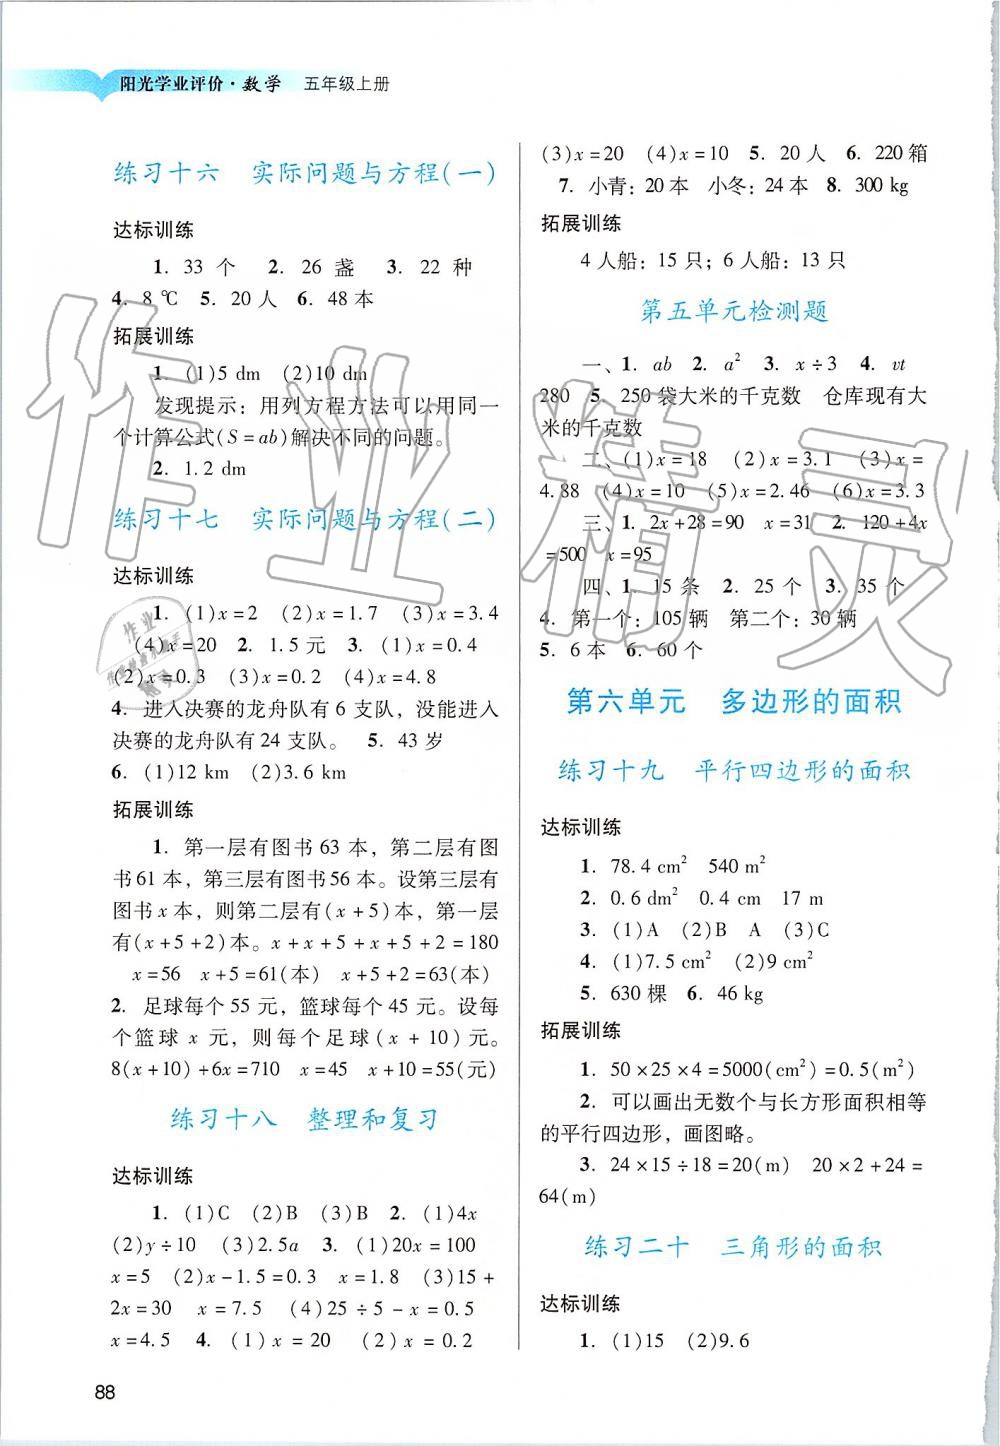 阳光学业评价·数学 五年级上册
练习十六 实际问题与方程(一)
达标训练
1. 33 个 2. 26 盏 3. 22 种
4. 8 ℃ 5. 20 人 6. 48 本
拓展训练
1. (1)5 dm (2)10 dm
发现提示：用列方程方法可以用同一
个计算公式(S=ab)解决不同的问题。
2. 1.2 dm
练习十七 实际问题与方程(二)
达标训练
1. (1)x=2 (2)x=1.7 (3)x=3.4
(4)x=20 2. 1.5 元 3. (1)x=0.4
(2)x=0.3 (3)x=0.2 (4)x=4.8
4. 进入决赛的龙舟队有 6 支队，没能进入
决赛的龙舟队有 24 支队。 5. 43 岁
6. (1)12 km (2)3.6 km
拓展训练
1. 第一层有图书 63 本，第二层有图
书 61 本，第三层有图书 56 本。设第三层有
图书 x 本，则第二层有(x+5)本，第一层
有(x+5+2)本。x+x+5+x+5+2=180
x=56 x+5=61(本) x+5+2=63(本)
2. 足球每个 55 元，篮球每个 45 元。设每
个篮球 x 元，则每个足球(x+10)元。
8(x+10)+6x=710 x=45 x+10=55(元)
练习十八 整理和复习
达标训练
1. (1)C (2)B (3)B 2. (1)4x
(2)y÷10 (3)2.5a 3. (1)20x=100
x=5 (2)x-1.5=0.3 x=1.8 (3)15+
2x=30 x=7.5 (4)25÷5-x=0.5
x=4.5 4. (1)x=20 (2)x=0.2
88
(3)x=20 (4)x=10 5. 20 人 6. 220 箱
7. 小青：20 本 小冬：24 本 8. 300 kg
拓展训练
4 人船：15 只；6 人船：13 只
第五单元检测题
一、1. ab 2. a² 3. x÷3 4. vt
280 5. 250 袋大米的千克数 仓库现有大
米的千克数
二、(1)x=18 (2)x=3.1 (3)x=
4.88 (4)x=10 (5)x=2.46 (6)x=3.3
三、1. 2x+28=90 x=31 2. 120+4x
=500 x=95
四、1. 15 条 2. 25 个 3. 35 个
4. 第一个：105 辆 第二个：30 辆
5. 6 本 6. 60 个
第六单元 多边形的面积
练习十九 平行四边形的面积
达标训练
1. 78.4 cm² 540 m²
2. 0.6 dm² 0.4 cm 17 m
3. (1)A (2)B A (3)C
4. (1)7.5 cm² (2)9 cm²
5. 630 棵 6. 46 kg
拓展训练
1. 50×25×4=5000(cm²)=0.5(m²)
2. 可以画出无数个与长方形面积相等
的平行四边形，画图略。
3. 24×15÷18=20(m) 20×2+24=
64(m)
练习二十 三角形的面积
达标训练
1. (1)15 (2)9.6
作业精灵